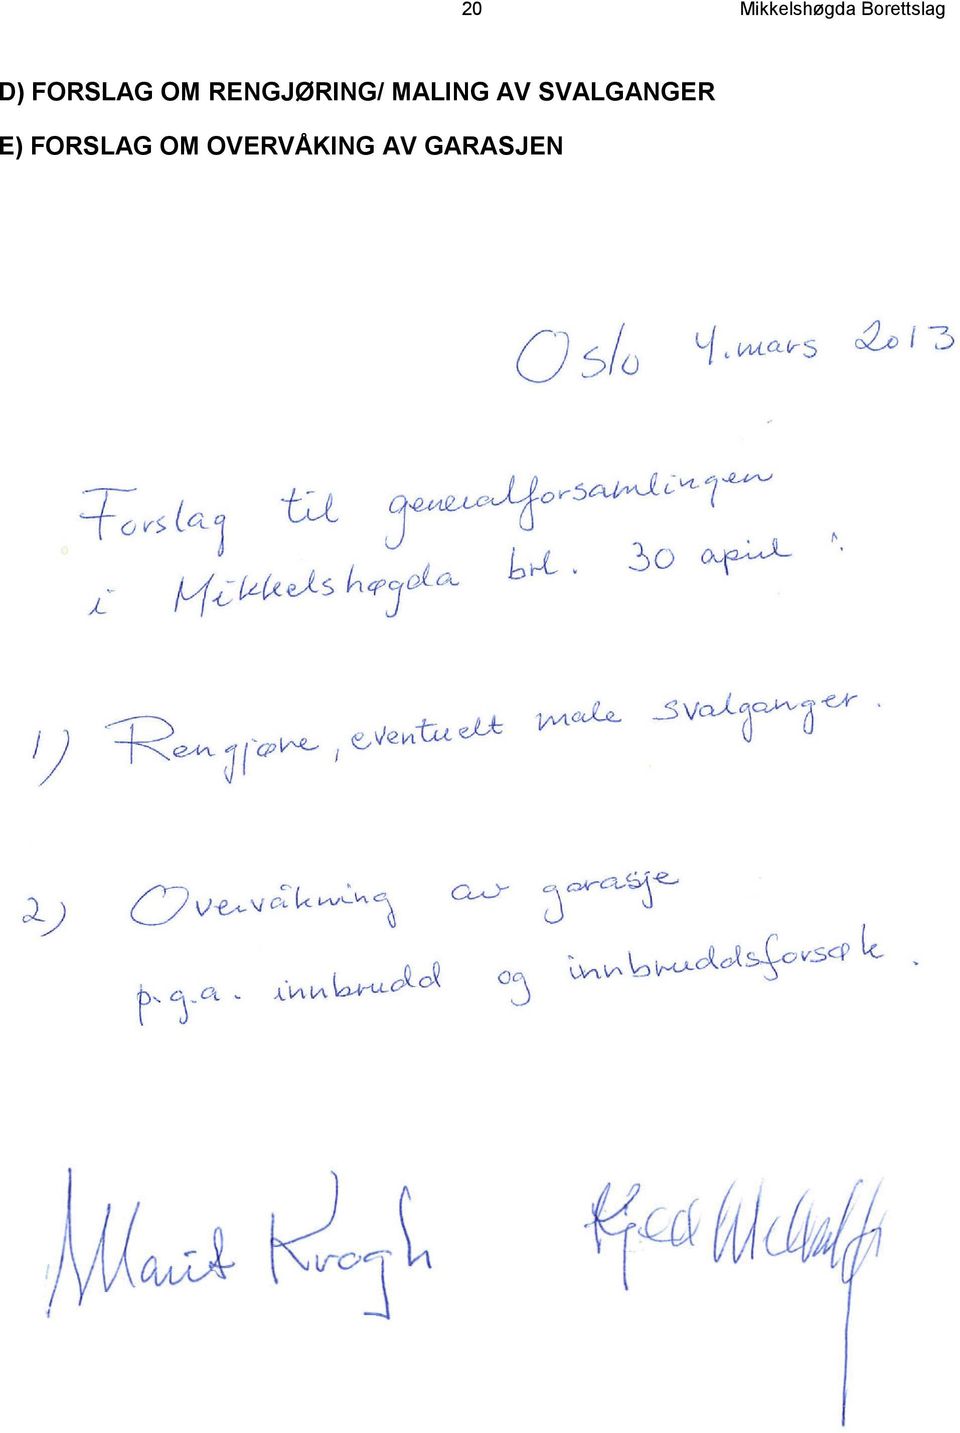 20 Mikkelshøgda Borettslag
D) FORSLAG OM RENGJØRING/ MALING AV SVALGANGER
E) FORSLAG OM OVERVÅKING AV GARASJEN
Oslo 4. mars 2013
Forslag til generalforsamlingen
i Mikkelshøgda brl. 30 april :
1) Rengjøre, eventuelt male svalganger.
2) Overvåkning av garasje
p.g.a. innbrudd og innbruddsforsøk.
Marit Krogh Kjell